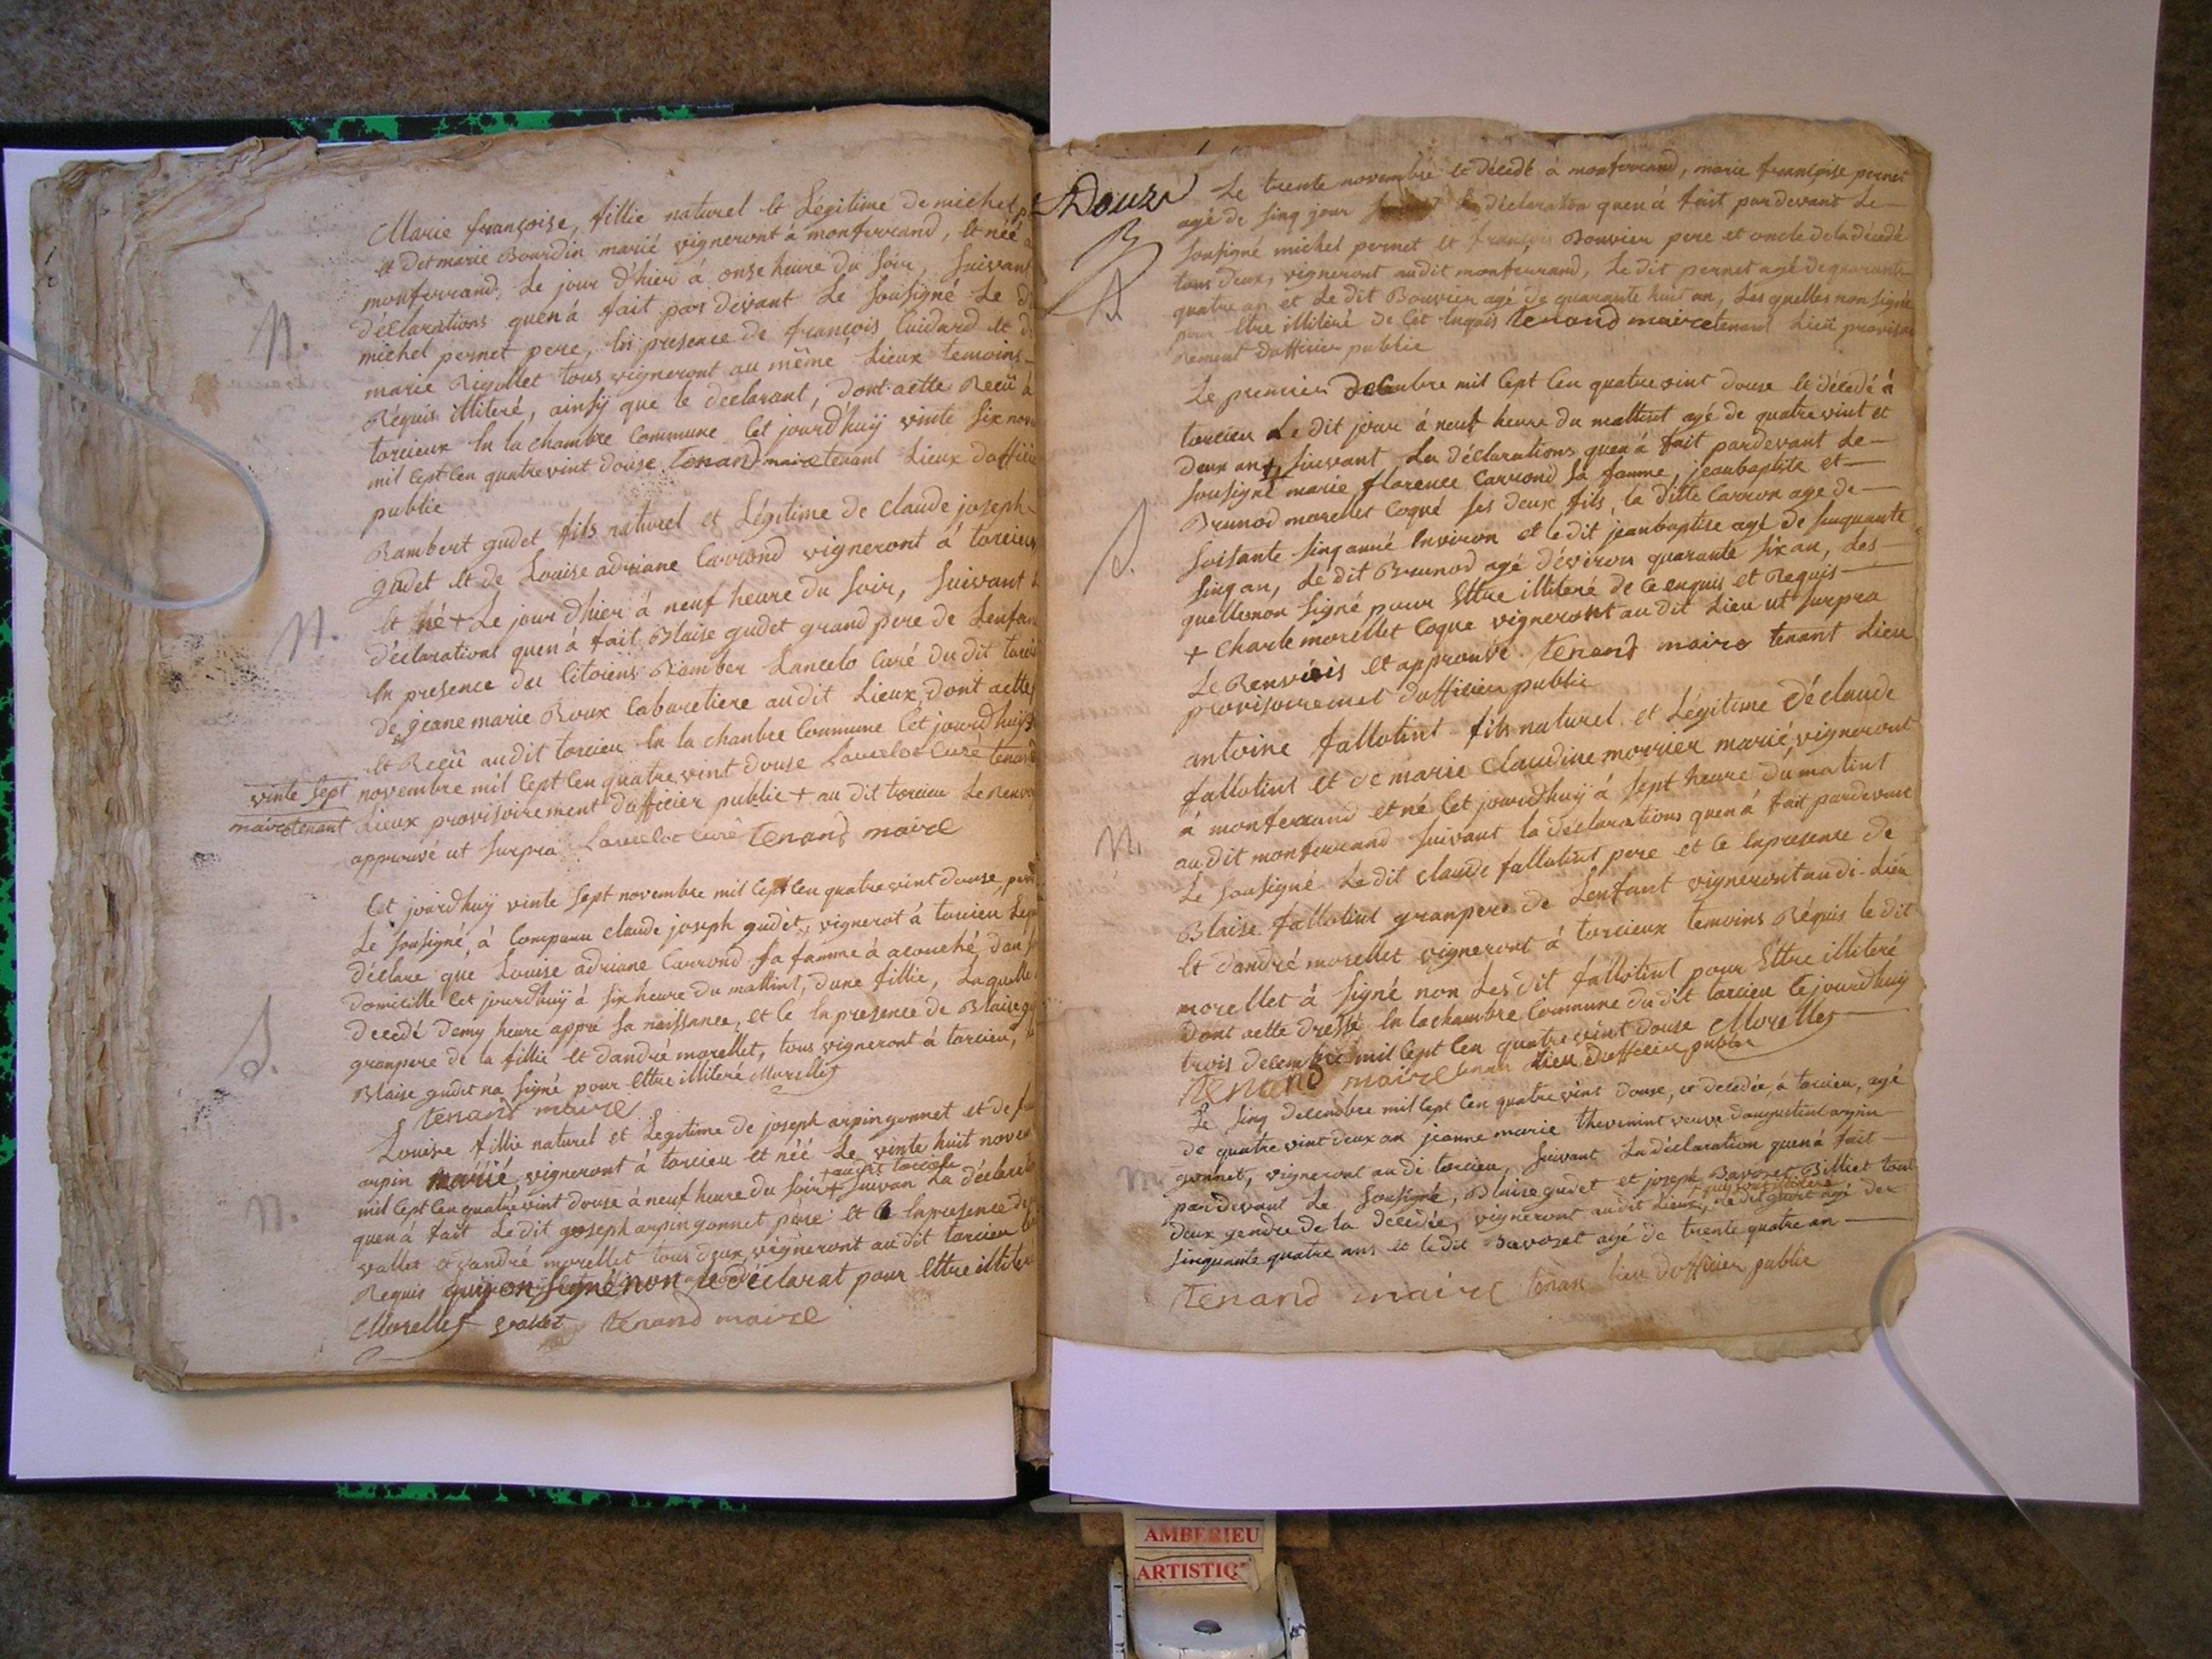 Marie françoise, fillie naturel et Légitime de michel
et det marie Bourdin marié vigneront à monferrand, et néé
monferrand, Le jour d'hier à onse heure du soir, suivant
N. déclarations quen'á fait par dévant Le sousigné Le
michel pernet pere, En presence de françois Cuidard et
marie Rigollet tous vigneront au même Lieux temoins
Réquis illiteré, ainsÿ que le declarant, dont actte Reçü à
torcieux En la chambre Commune Cet jourd'huÿ vinte six nov
mil Cept Cen quatrevint douse. tenand maire tenant Lieux d'officié
public
Rambert gudet fils naturel et Légitime de claude joseph
gudet et de Louise adriane Carrond vigneront à torcieu
N. et né + Le jour d'hier à neuf heure du soir, suivant
déclarations quen'á fait Blaise gudet grand pere de Lenfan
En presence des Citoiens Ramber Lancelo Curé du dit torci
de jeane marie Roux Cabaretiere audit Lieux, dont actte
et Reçü audit torcieu En la chanbre Commune Cét jourd'huÿ
vinte sept novembre mil Cept Cen quatrevint douse Lancelot Curé tenand
maire tenant Lieux provisoirement d'officier public + au dit torcieu Le Renvoi
approuvé ut surpra Lancelot curé tenand maire
Cet jourd'huÿ vinte sept novembre mil Cept Cen quatrevint douse, par
Le sousigné, à Comparu claude joseph gudet, vignerot à torcieu
déclare que Louise adriane Carrond sa famme à acouché dan
domicille Cet jourd'huÿ à six heure du mattint, dune fillie, Laquelle
S. decedé demy heure appré sa naissance, et ce En presence de Blaise
granpere de la fillie et d'andré morellet, tous vigneront à torcieu,
Blaise gudet na signé pour Ettre illiteré Morellet
tenand maire
Louise fillie naturel et Legitime de joseph arpin gonnet et de
arpin marié, vigneront à torcieu et néé Le vinte huit novem
+ audit torcieu
N. mil Cept Cen quatrevint douse à neuf heure du soir + suivan La déclara
quen'á fait Le dit joseph arpin gonnet pere et ce En presence de
vallet et d'andré morellet tous deux vigneront audit torcieu
Requis qui on signé non le déclarat pour Ettre illiteré
Morellet vallet tenand maire
Douze
Le trente novembre et décédé à monferrand, marie françoise pernet
agé de sinq jour déclaration quen'á fait pardevant Le
sousigné michel pernet et françois Bouvier pere et oncle de la décédé
tous deux, vigneront audit monferrand, Le dit pernet agé de quarante
S. quatre an et Le dit Bouvier agé de quarante huit an, Les quelles non signé
pour Etre illiteré de Cet Enquis tenand maire tenant Lieü provisoi
rement d'officier public
Le premier décembre mil Cept Cen quatrevint douse et décédé à
torcieu Le dit jour à neuf heure du mattint agé de quatre vint et
deux an +, suivant La déclarations quen'á fait pardevant Le
sousigné marie florence Carrond sa famme, jeanbaptiste et
Brunod morellet Coqué ses deux fils, la ditte Carron agé de
S. soisante sinq anné Environ et le dit jeanbaptise agé de sinquante
sinq an, Le dit Brunod agé d'éviron quarante six an, Les
quelles non signé pour Ettre illiteré de Ce enquis et Requis
+ charle morellet Coque vigneront au dit Lieu ut surpra
Le Renvois et approuvé. tenand maire tenant Lieu
provisoirement d'officier public
antoine fallotint fils naturel et Légitime dé claude
fallotint et de marie claudine morrier marié, vigneront
à monferrand et né Cet jourd'huÿ à sept heure du matint
N. au dit monferrand suivant la déclarations quen'á fait pardevant
Le sousigné Ledit claude fallotint pere et Ce En presence de
Blaise fallotint granpere de Lenfant vigneront au di-Lieu
et d'andré morellet vigneront à torcieux temoins Réquis le dit
morellet à signé non Les dit fallotint pour Ettre illiteré
dont actte dressé En la chambre Commune du dit torcieu Ce jourd'huÿ
trois decembre mil Cept Cen quatrevint douse Morellet
tenand maire tenan Lieu d'officier public
Le sinq decembre mil Cept Cen quatrevint douse, et decedée, à torcieu, agé
de quatre vint deux an jeanne marie thevenint veuve d'augustint arpin
gonnet, vigneront au di torcieu, suivant La déclaration quen'á fait
pardevant Le sousigné, Blaise gudet et joseph Savoset Billiet tout
deux gendre de la decedée, vigneront au dit Lieux, Le dit gudet agé de
sinquante quatre ans et le dit Savoset agé de trente quatre an
tenand maire tenan lieu d'officier public
AMBERIEU
ARTISTIQ